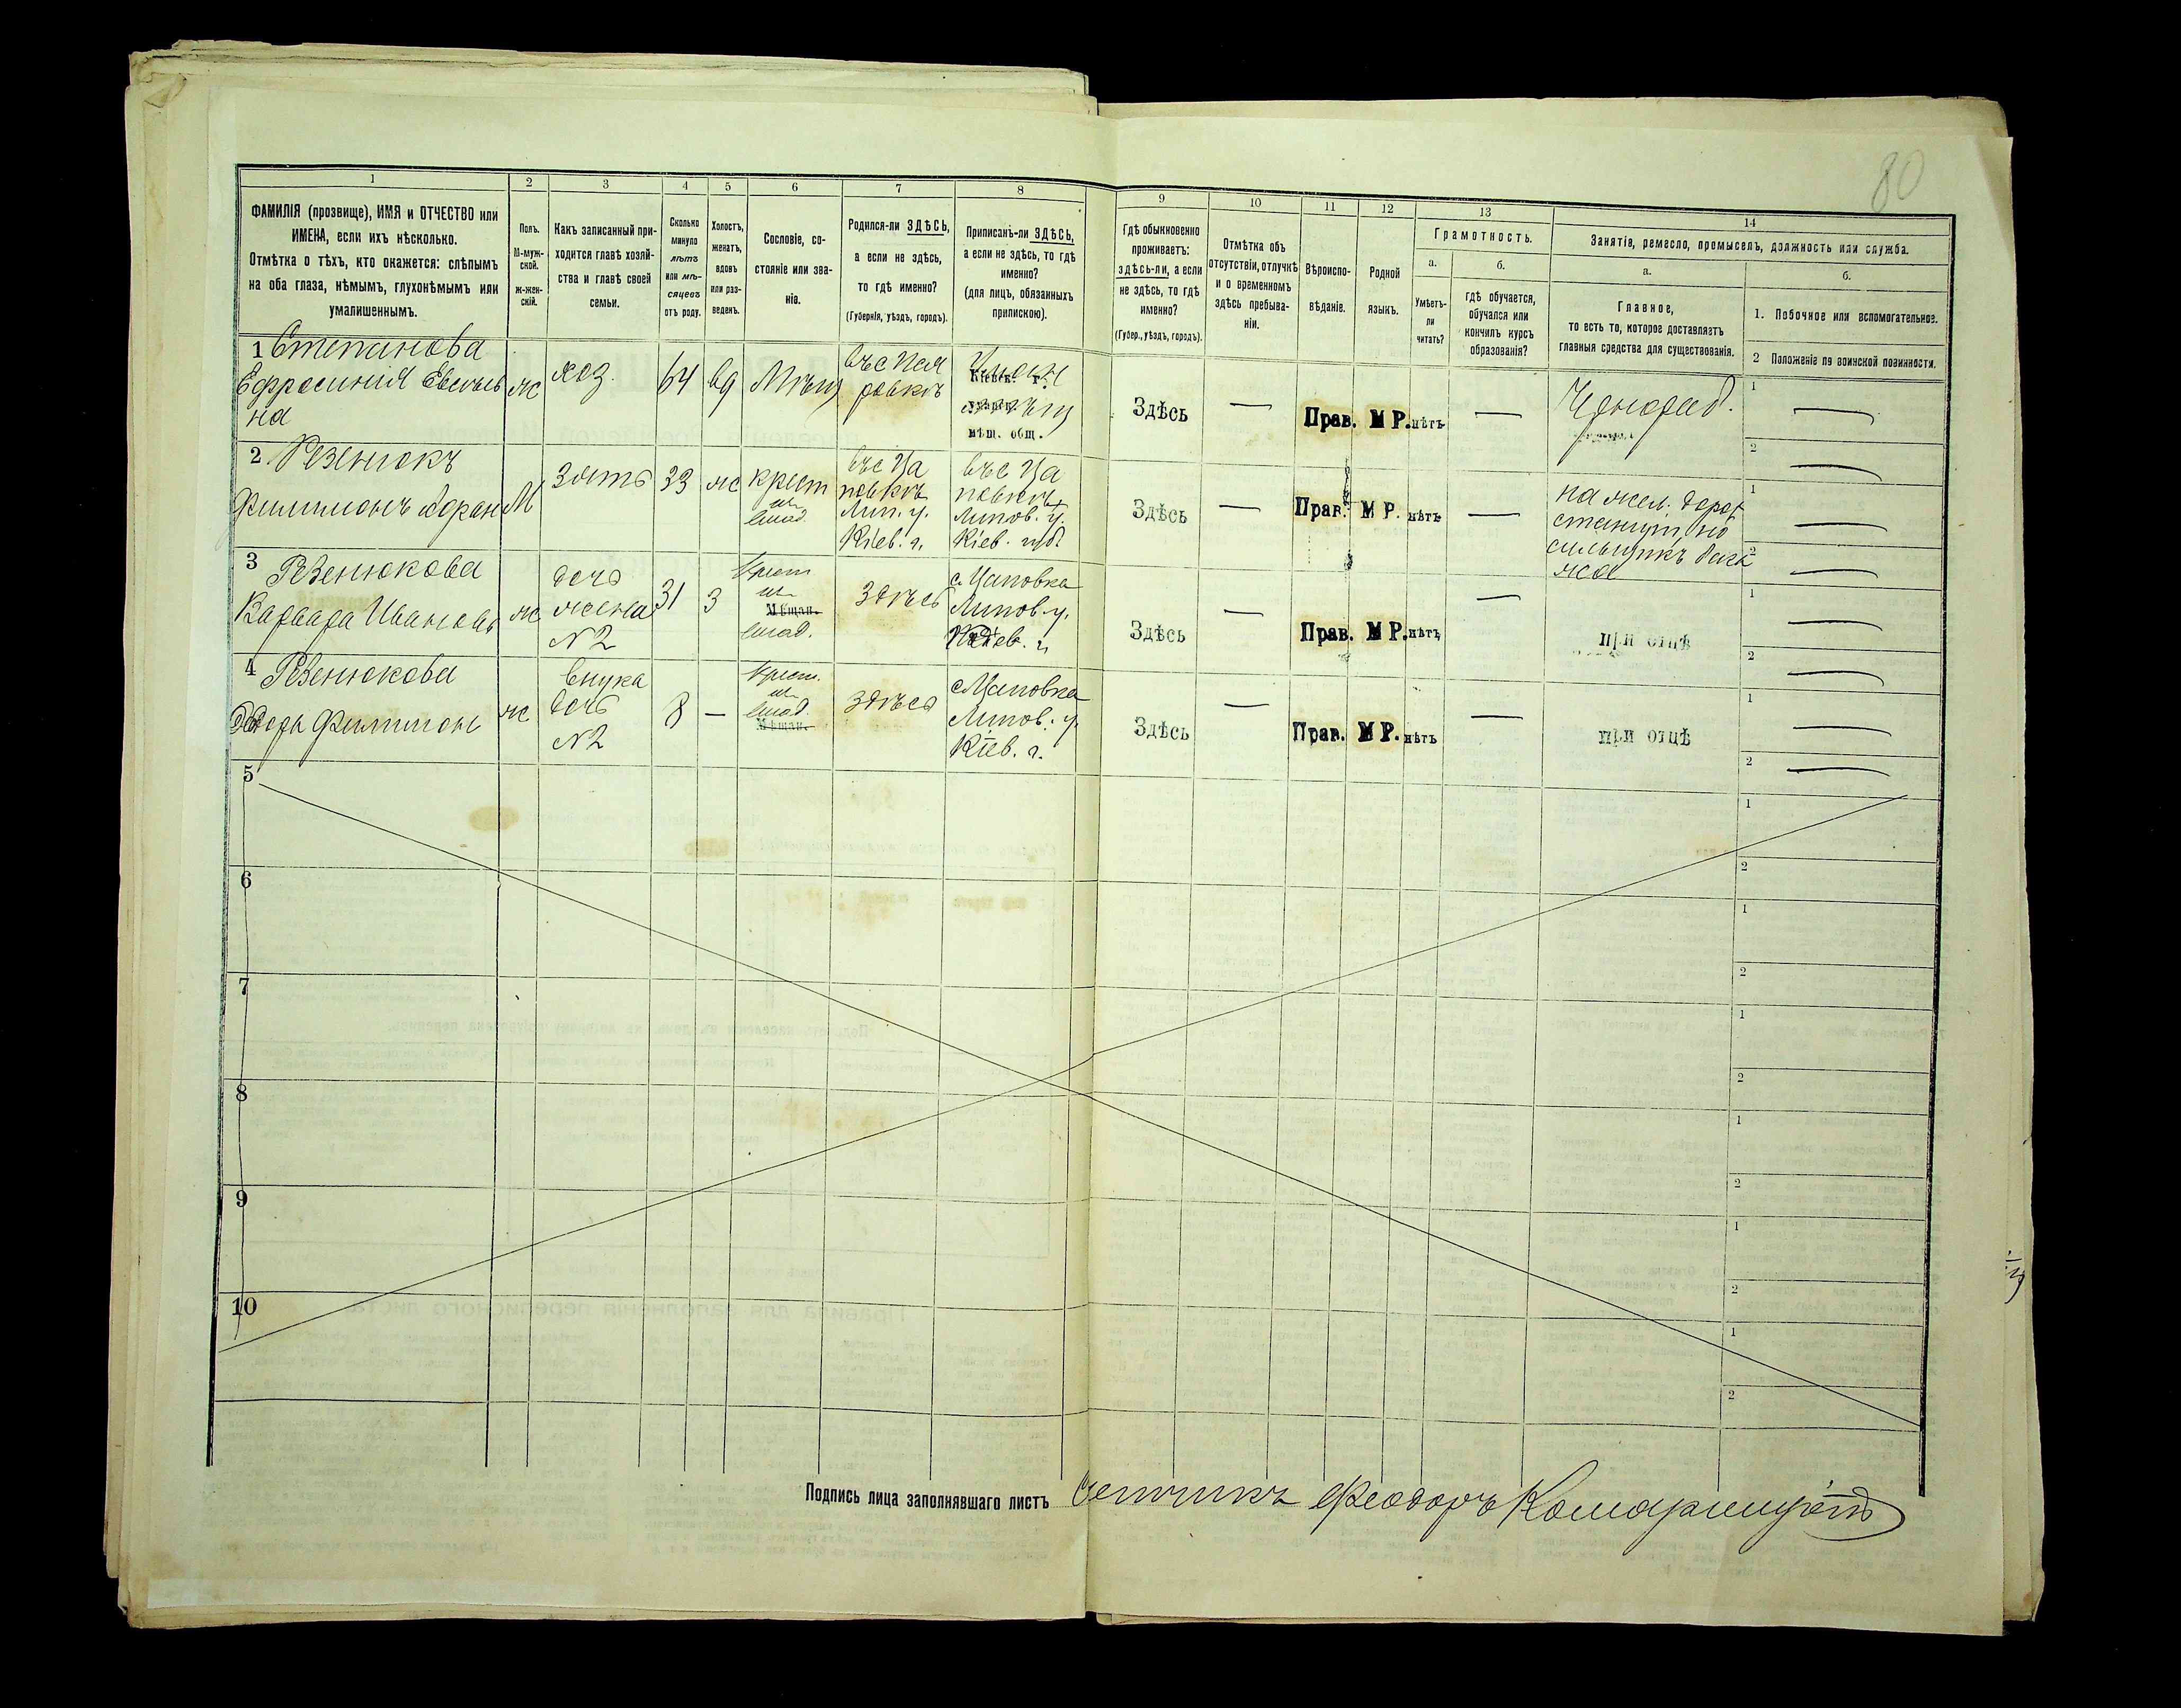 80
1 2 3 4 5 6 7 8 9 10 11 12 13 14
ФАМИЛІЯ (прозвище), ИМЯ и ОТЧЕСТВО или
ИМЕНА, если ихъ нѣсколько.
Отмѣтка о тѣхъ, кто окажется: слѣпымъ
на оба глаза, нѣмымъ, глухонѣмымъ или
умалишеннымъ.
Полъ.
М-муж-
ской.
Ж-жен-
скій.
Какъ записанный при-
ходится главѣ хозяй-
ства и главѣ своей
семьи.
Сколько
минуло
лѣтъ
или мѣ-
сяцевъ
отъ роду.
Холостъ,
женатъ,
вдовъ
или раз-
веденъ.
Сословіе, со-
стояніе или зва-
ніе.
Родился-ли ЗДѢСЬ,
а если не здѣсь,
то гдѣ именно?
(Губернія, уѣздъ, городъ).
Приписанъ-ли ЗДѢСЬ,
а если не здѣсь, то гдѣ
именно?
(для лицъ, обязанныхъ
припискою).
Гдѣ обыкновенно
проживаетъ:
здѣсь-ли, а если
не здѣсь, то гдѣ
именно?
(Губер., уѣздъ, городъ).
Отмѣтка объ
отсутствіи, отлучкѣ
и о временномъ
здѣсь пребыва-
ніи.
Вѣроиспо-
вѣданіе.
Родной
языкъ.
Грамотность.
а.
Умѣетъ-
ли
читать?
б.
Гдѣ обучается,
обучался или
кончилъ курсъ
образованія?
Занятіе, ремесло, промыселъ, должность или служба.
а.
Главное,
то есть то, которое доставляетъ
главныя средства для существованія.
б.
1. Побочное или вспомогательное.
2 Положеніе по воинской повинности.
1 Степанова
Ефросинія
на
ж
хоз.
64
вд
Мѣщ
Кіевск. г.
мѣщ. общ.
Здѣсь
—
Прав.
М Р.
нѣтъ
—
1 —
2 —
2 Резенюкъ
Филимонъ
М
зять
33
ж
крест
Лип. у.
Кіев. г.
Липов. у.
Кіев. губ.
Здѣсь
—
Прав.
М Р.
нѣтъ
—
на жел. дорог
1 —
2 —
3 Резенюкова
Варвара Иванова
ж
дочь
жена
№ 2
31
З
Крест
Мѣщан.
здѣсь
с. Цаповка
Липов. у.
Кіев. г.
Здѣсь
—
Прав.
М Р.
нѣтъ
—
при отцѣ
1 —
2 —
4 Резенюкова
Филимон
ж
внука
дочь
№ 2
8
—
Крест.
Мѣщан.
здѣсь
с. Цаповка
Липов. у.
Кіев. г.
Здѣсь
—
Прав.
М Р.
нѣтъ
—
при отцѣ
1 —
2 —
5
1
2
6
1
2
7
1
2
8
1
2
9
1
2
10
1
2
Подпись лица заполнявшаго листъ Счетчикъ Феодоръ